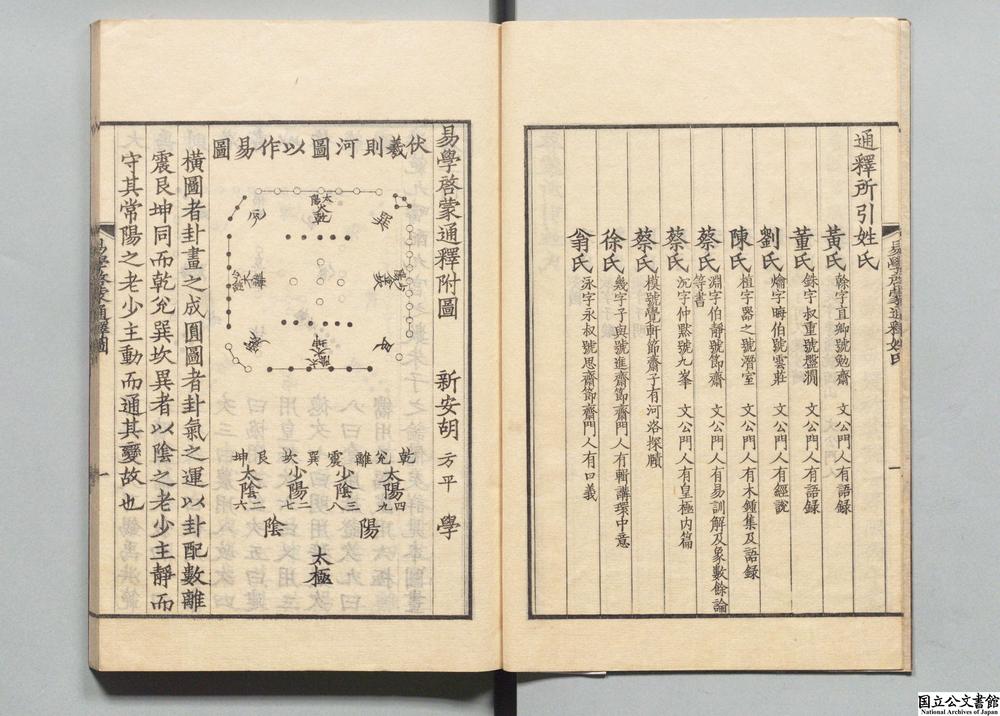 通釋所引姓氏
黃氏 榦字直卿號勉齋 文公門人有語録
董氏 銖字叔重號盤澗 文公門人有語録
劉氏 爚字晦伯號雲莊 文公門人有經說
陳氏 植字器之號潛室 文公門人有木鍾集及語録
蔡氏 淵字伯靜號節齋 文公門人有易訓解及象數餘論等書
蔡氏 沉字仲黙號九峯 文公門人有皇極内篇
蔡氏 模號覺軒節齋子有河洛探賾
徐氏 幾字子與號進齋節齋門人有輯講環中意
翁氏 泳字永叔號思齋節齋門人有口義
易學啓蒙通釋姓氏
一
易學啓蒙通釋附圖 新安胡 方平 學
伏羲則河圖以作易圖
太陽
乾
巽
坤
乾兌離震巽坎艮坤
太陽 四九
少陰 三八
少陽 二七
太陰 一六
陽
陰
太極
橫圖者卦畫之成圓圖者卦氣之運以卦配數離
震艮坤同而乾兌巽坎異者以陰之老少主靜而
守其常陽之老少主動而通其變故也
易學啓蒙通釋圖
一
国立公文書館
National Archives of Japan